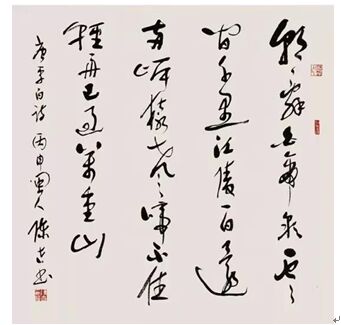 朝辭白帝彩雲
間千里江陵一日還
兩岸猿聲啼不住
輕舟已過萬重山
唐李白詩 丙申 閩人 陳